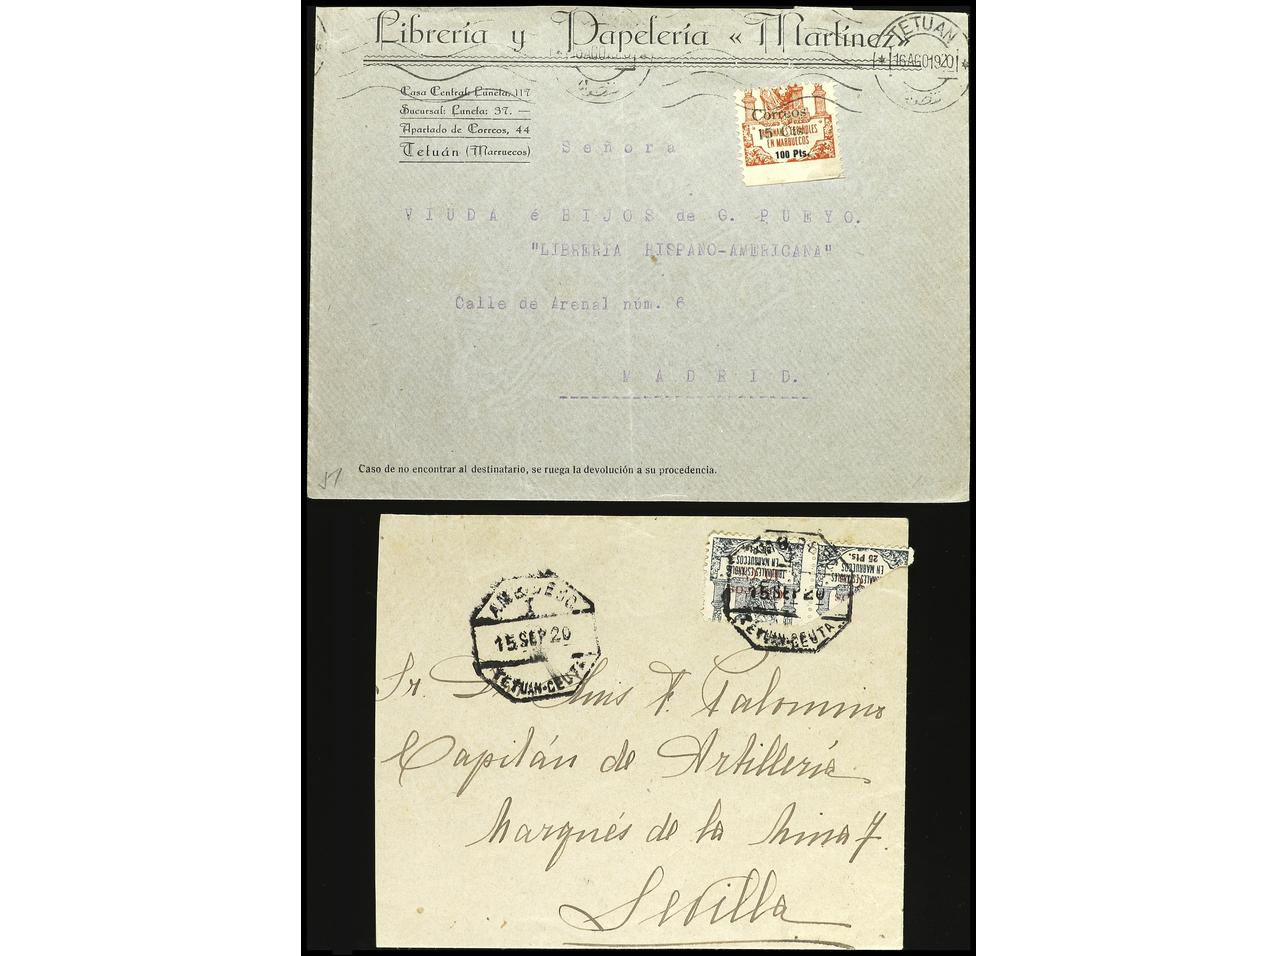 Librería y Papelería « Martínez»
TETUAN
16AGO1920
Casa Central: Luneta, 117
Sucursal: Luneta: 37. —
Apartado de Correos, 44
Tetuán (Marruecos)
Correos
15
EN MARRUECOS
100 Pts.
Señora
VIUDA é HIJOS de G. PUEYO.
"LIBRERIA HISPANO-AMERICANA"
Calle de Arenal núm. 6
MADRID.
Caso de no encontrar al destinatario, se ruega la devolución a su procedencia.
EN MARRUECOS
25 Pts.
EN MARRUECOS
15 SEP 20
TETUAN-CEUTA
15 SEP 20
TETUAN-CEUTA
Sr. D. Luis F. Palomino
Capitán de Artillería
Marqués de la Mina 7.
Sevilla